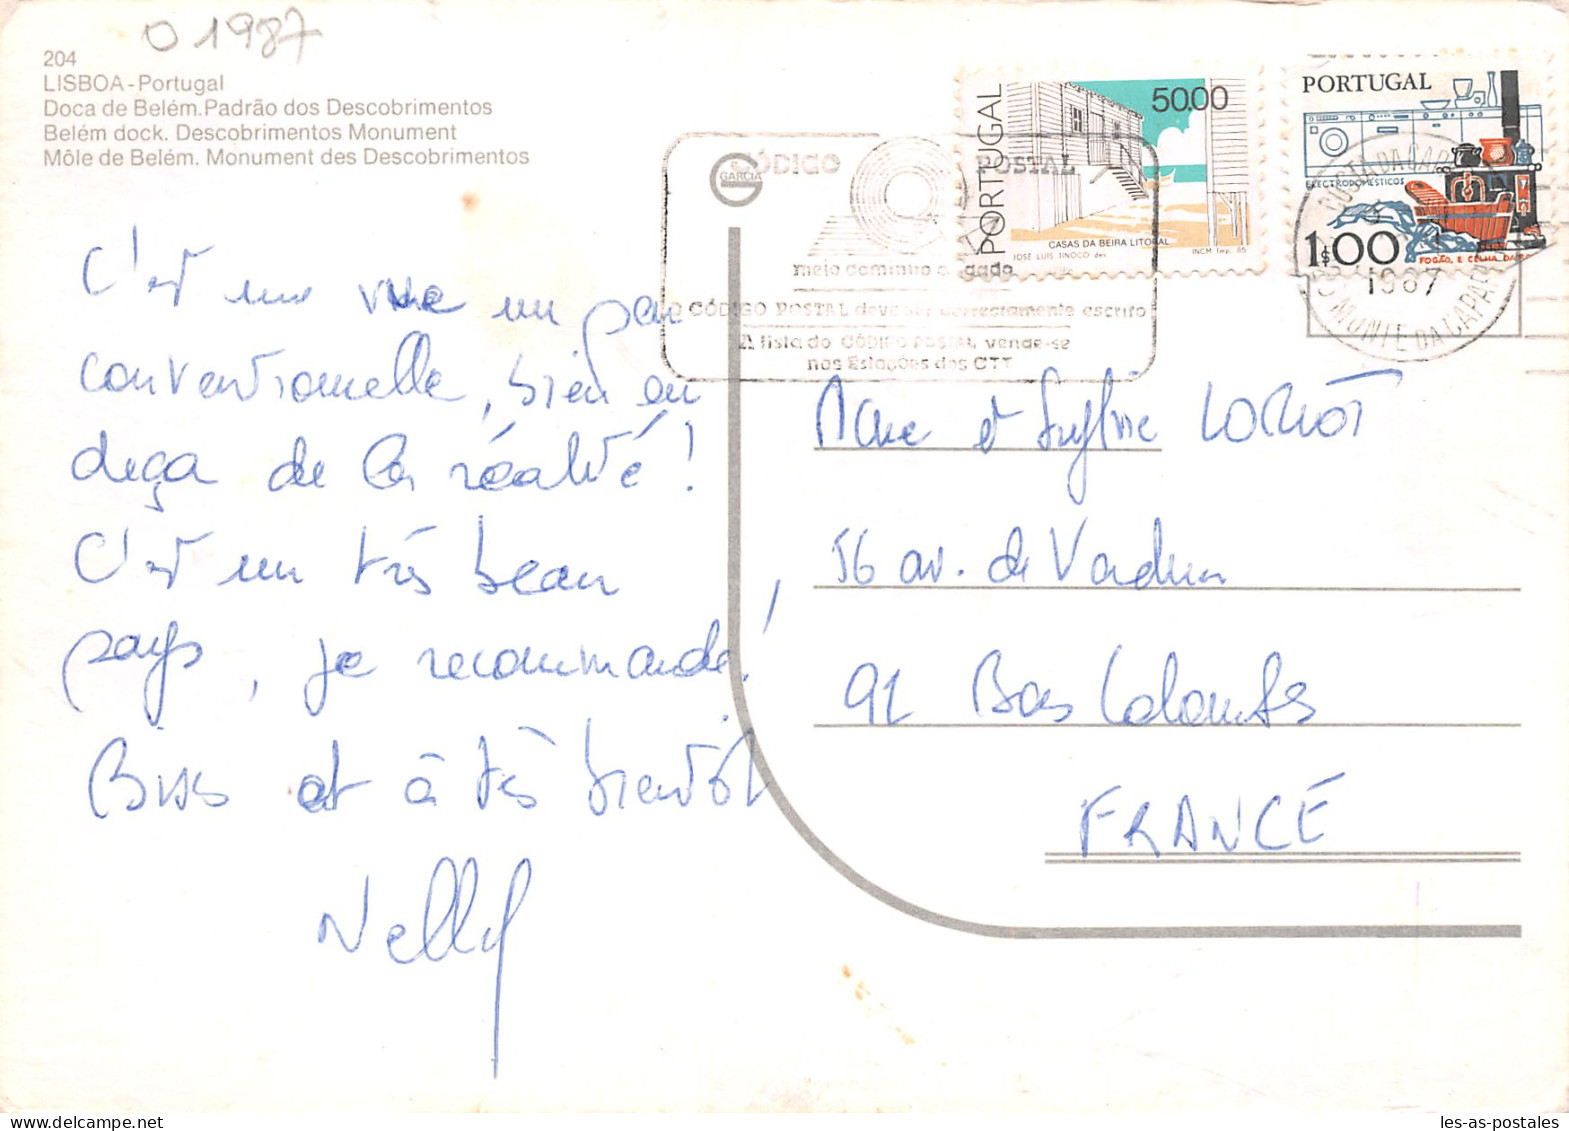 O 1987
204
LISBOA - Portugal
Doca de Belém. Padrão dos Descobrimentos
Belém dock. Descobrimentos Monument
Môle de Belém. Monument des Descobrimentos
C'est une vue un peu
conventionnelle, bien en
deça de la réalité !
C'est un très beau
pays, je recommande !
Bises et à très bientôt
Nelly
GARCIA
CÓDIGO POSTAL
meio caminho andado
O CÓDIGO POSTAL deve ser correctamente escrito
A lista do CÓDIGO POSTAL vende-se
nas Estações dos CTT
PORTUGAL
50.00
CASAS DA BEIRA LITORAL
JOSÉ LUIS TINOCO des. INCM Imp. 85
PORTUGAL
ELECTRODOMÉSTICOS
1$00
FOGÃO, E CELHA DA
COSTA DA CAPARICA
1987
MONTE DA CAPARICA
et Sylvie LORIOT
56 av. de Verdun
92 Bois Colombes
FRANCE
les-as-postales